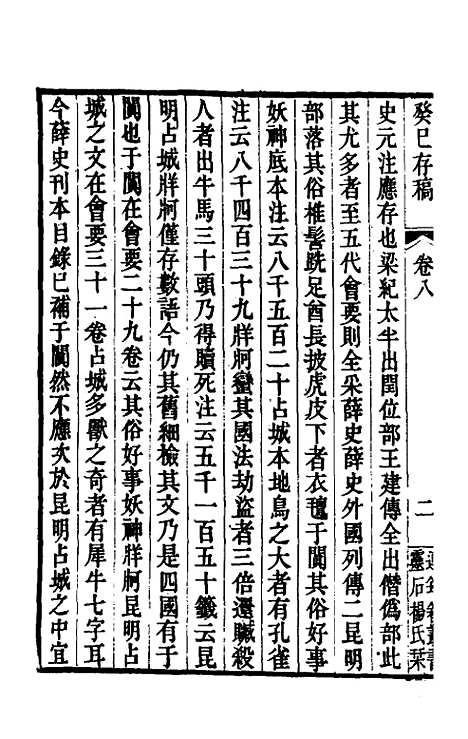 癸巳存稿
卷八
二
連筠簃叢書
靈石楊氏栞
史元注應存也梁紀太半出閏位部王建傳全出僭僞部此
其尤多者至五代會要則全采薛史薛史外國列傳二昆明
部落其俗椎髻跣足酋長披虎皮下者衣氊于闐其俗好事
妖神底本注云八千五百二十占城本地鳥之大者有孔雀
注云八千四百三十九牂牁蠻其國法劫盜者三倍還贓殺
人者出牛馬三十頭乃得贖死注云五千一百五十籤云昆
明占城牂牁僅存數語今仍其舊細檢其文乃是四國有于
闐也于闐在會要二十九卷云其俗好事妖神牂牁昆明占
城之文在會要三十一卷占城多獸之奇者有犀牛七字耳
今薛史刊本目錄已補于闐然不應次於昆明占城之中宜